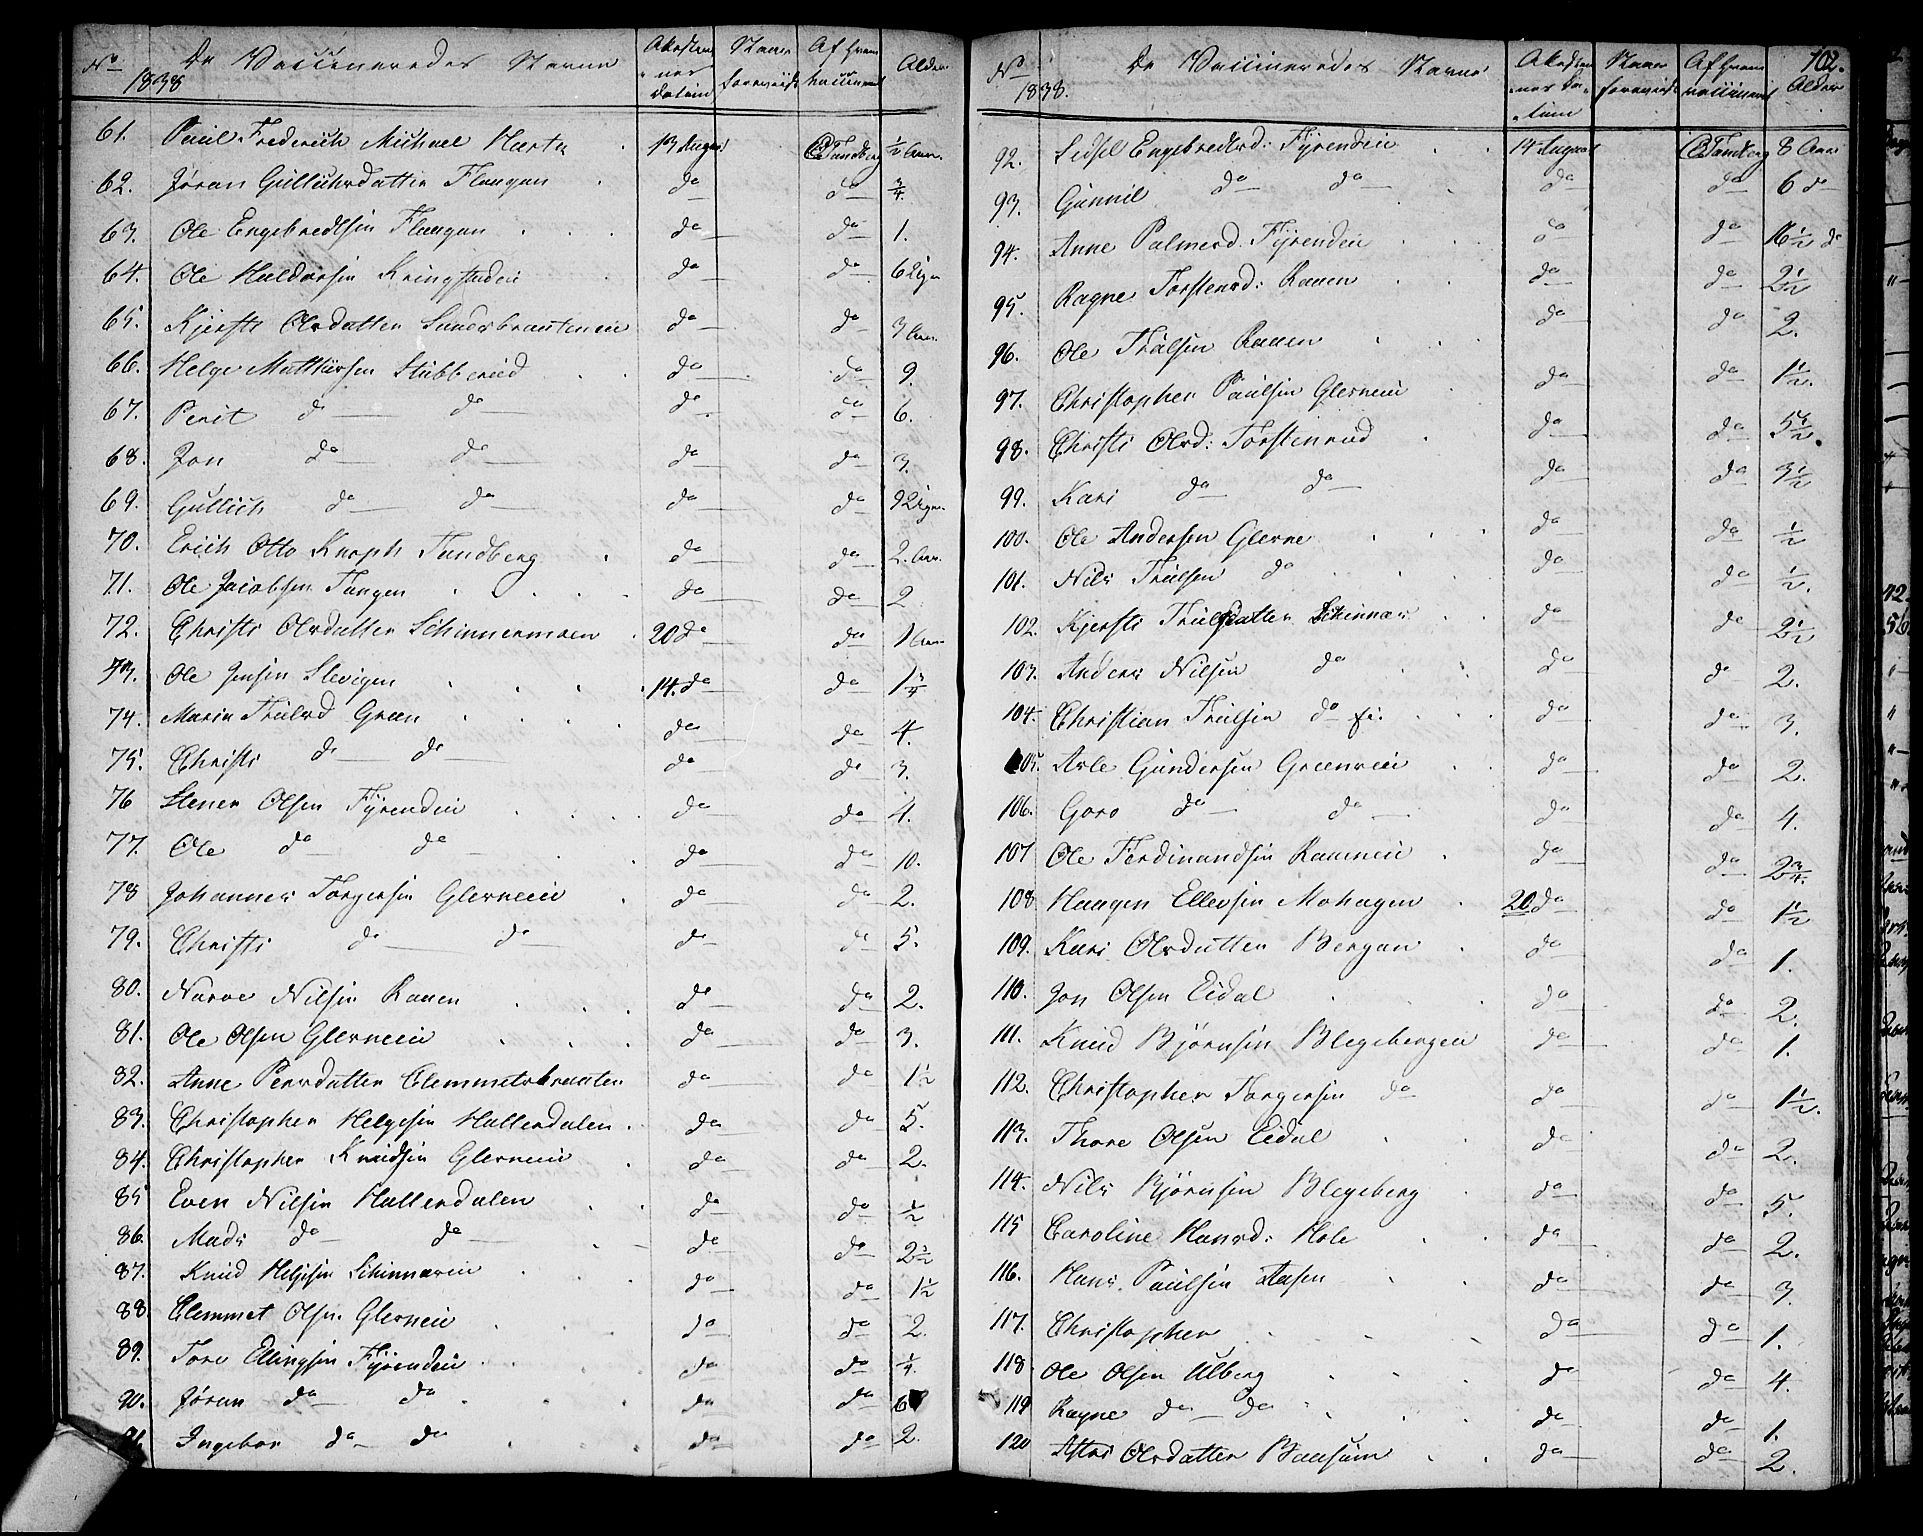 No De Vaccineredes Navne Attestens Datum Naar Af hvem vaccineret Alder
1838
61. Paul Frederich Michael Hartz 13 August C Tandberg 1/2 Aar.
62. Jøran Gulliksdatter Flaagan do do 3/4.
63. Ole Engebredtsen Flaagan do do 1.
64. Ole Haldorsen Kringstadeie do do 6 Uger
65. Kjersti Olsdatter Sandsbrauteneie do do 3 Aar.
66. Helge Mathisen Stubberud do do 9.
67. Berit do do do do 6.
68. Jon do do do do 3.
69. Gullich do do do do 9 Uger.
70. Erich Otto Knoph Tandberg do do 2. Aar.
71. Ole Jacobsen Tangen do do 2
72. Christi Olsdatter Schinnermoen 20 do do 1 Aar
73. Ole Jensen Slevigen 14. do do 1 3/4
74. Marie Trulsd Green do do 4.
75. Christi do do do do 3.
76 Stener Olsen Fyrendeie do do 4.
77. Ole do do do do 10.
78 Johannes Torgersen Glerneeie do do 2.
79. Christi do do do do 5.
80. Narve Nilsen Rauen do do 2.
81. Ole Olsen Glerneeie do do 3.
82. Anne Persdatter Clemmetsbraaten do do 1 1/2
83. Christopher Helgesen Hallerdalen do do 5.
84. Christopher Knudsen Glerneeie do do 2.
85 Even Nilsen Hallerdalen do do 1/2
86. Mads do do do do 2 1/2
87. Knud Helgesen Schinnereie do do 1 1/2
88. Clemmet Olsen Glerneeie do do 2.
89. Tore Ellingsen Fyrendeie do do 1/4.
90. Jøran do do do do 6
91 Ingebor do do do do 2.
102.
No De Vaccineredes Navne Attestens Datum Naar Af hvem vaccineret Alder
1838.
92. Sidsel Engebredtsd: Fyrendeie 14 August C Tandberg 8 Aar
93. Gunnil do do do do 6 do
94. Anne Palmesd. Fyrendeie do do 16 1/2 do
95. Ragne Torstensd: Rauen do do 2 1/2
96. Ole Trulsen Rauen do do 2.
97. Christopher Paulsen Glerneeie do do 1 1/2.
98. Christi Olsd: Torstenrud do do 5 1/2.
99. Kari do do do do 3 1/2
100. Ole Andersen Glerne do do 1/2
101. Nils Trulsen do do do 1/2.
102. Kjersti Trulsdatter Schinnes do do 2 1/2
103. Anders Nilsen do do do 2.
104. Christian Trulsen do do do 3.
105. Asle Gundersen Greeneeie do do 2.
106. Goro do do do do 4.
107 Ole Ferdinandsen Raaeneie do do 2 3/4.
108 Haagen Ellevsen Mohagen 20. do do 1 1/2
109. Kari Olsdatter Bergan do do 1.
110. Jon Olsen Eidal do do 2.
111. Knud Bjørnsen Blegebergeie do do 1.
112. Christopher Torgersen do do do 1 1/2.
113. Thore Olsen Eidal do do 2.
114. Nils Bjørnsen Blegeberg do do 5.
115 Caroline Hansd: Hole do do 2.
116. Hans Paulsen Aasen do do 3.
117. Christopher do do 1.
118 Ole Olsen Ulberg do do 4.
119 Ragne do do do do 1.
120 Astri Olsdatter Baasum do do 2.